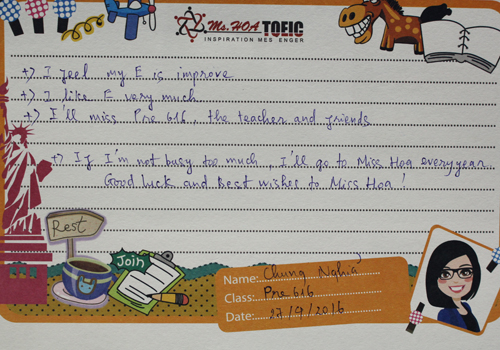 Ms. HOA TOEIC
INSPIRATION MES ENGER
+) I feel my E is improve
+) I like E very much
+) I'll miss Pre 616, the teacher and friends
+) If I'm not busy too much, I'll go to Miss Hoa every year.
Good luck and Best wishes to Miss Hoa!
Rest
Join
Name: Chung Nghĩa
Class: Pre 616
Date: 27/9/2016